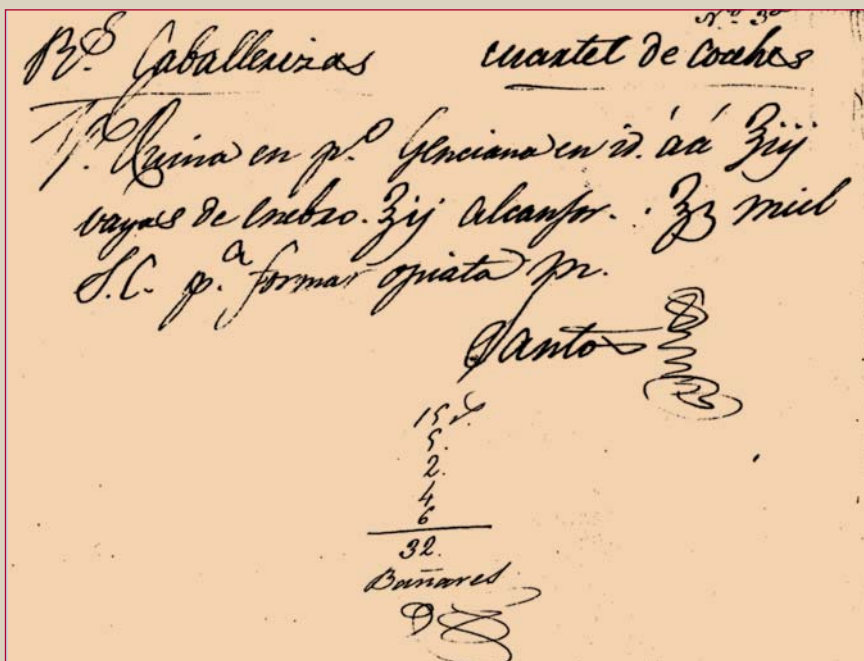 Nº 3º
Rs Caballerizas cuartel de Coches
Quina en pº Genciana en id. áá ʒiij
bayas de Enebro. ʒij Alcanfor. . ʒβ miel
S.C. p.ª formar opiata pr.
Santos
15
5.
2.
4
6
32.
Bañares